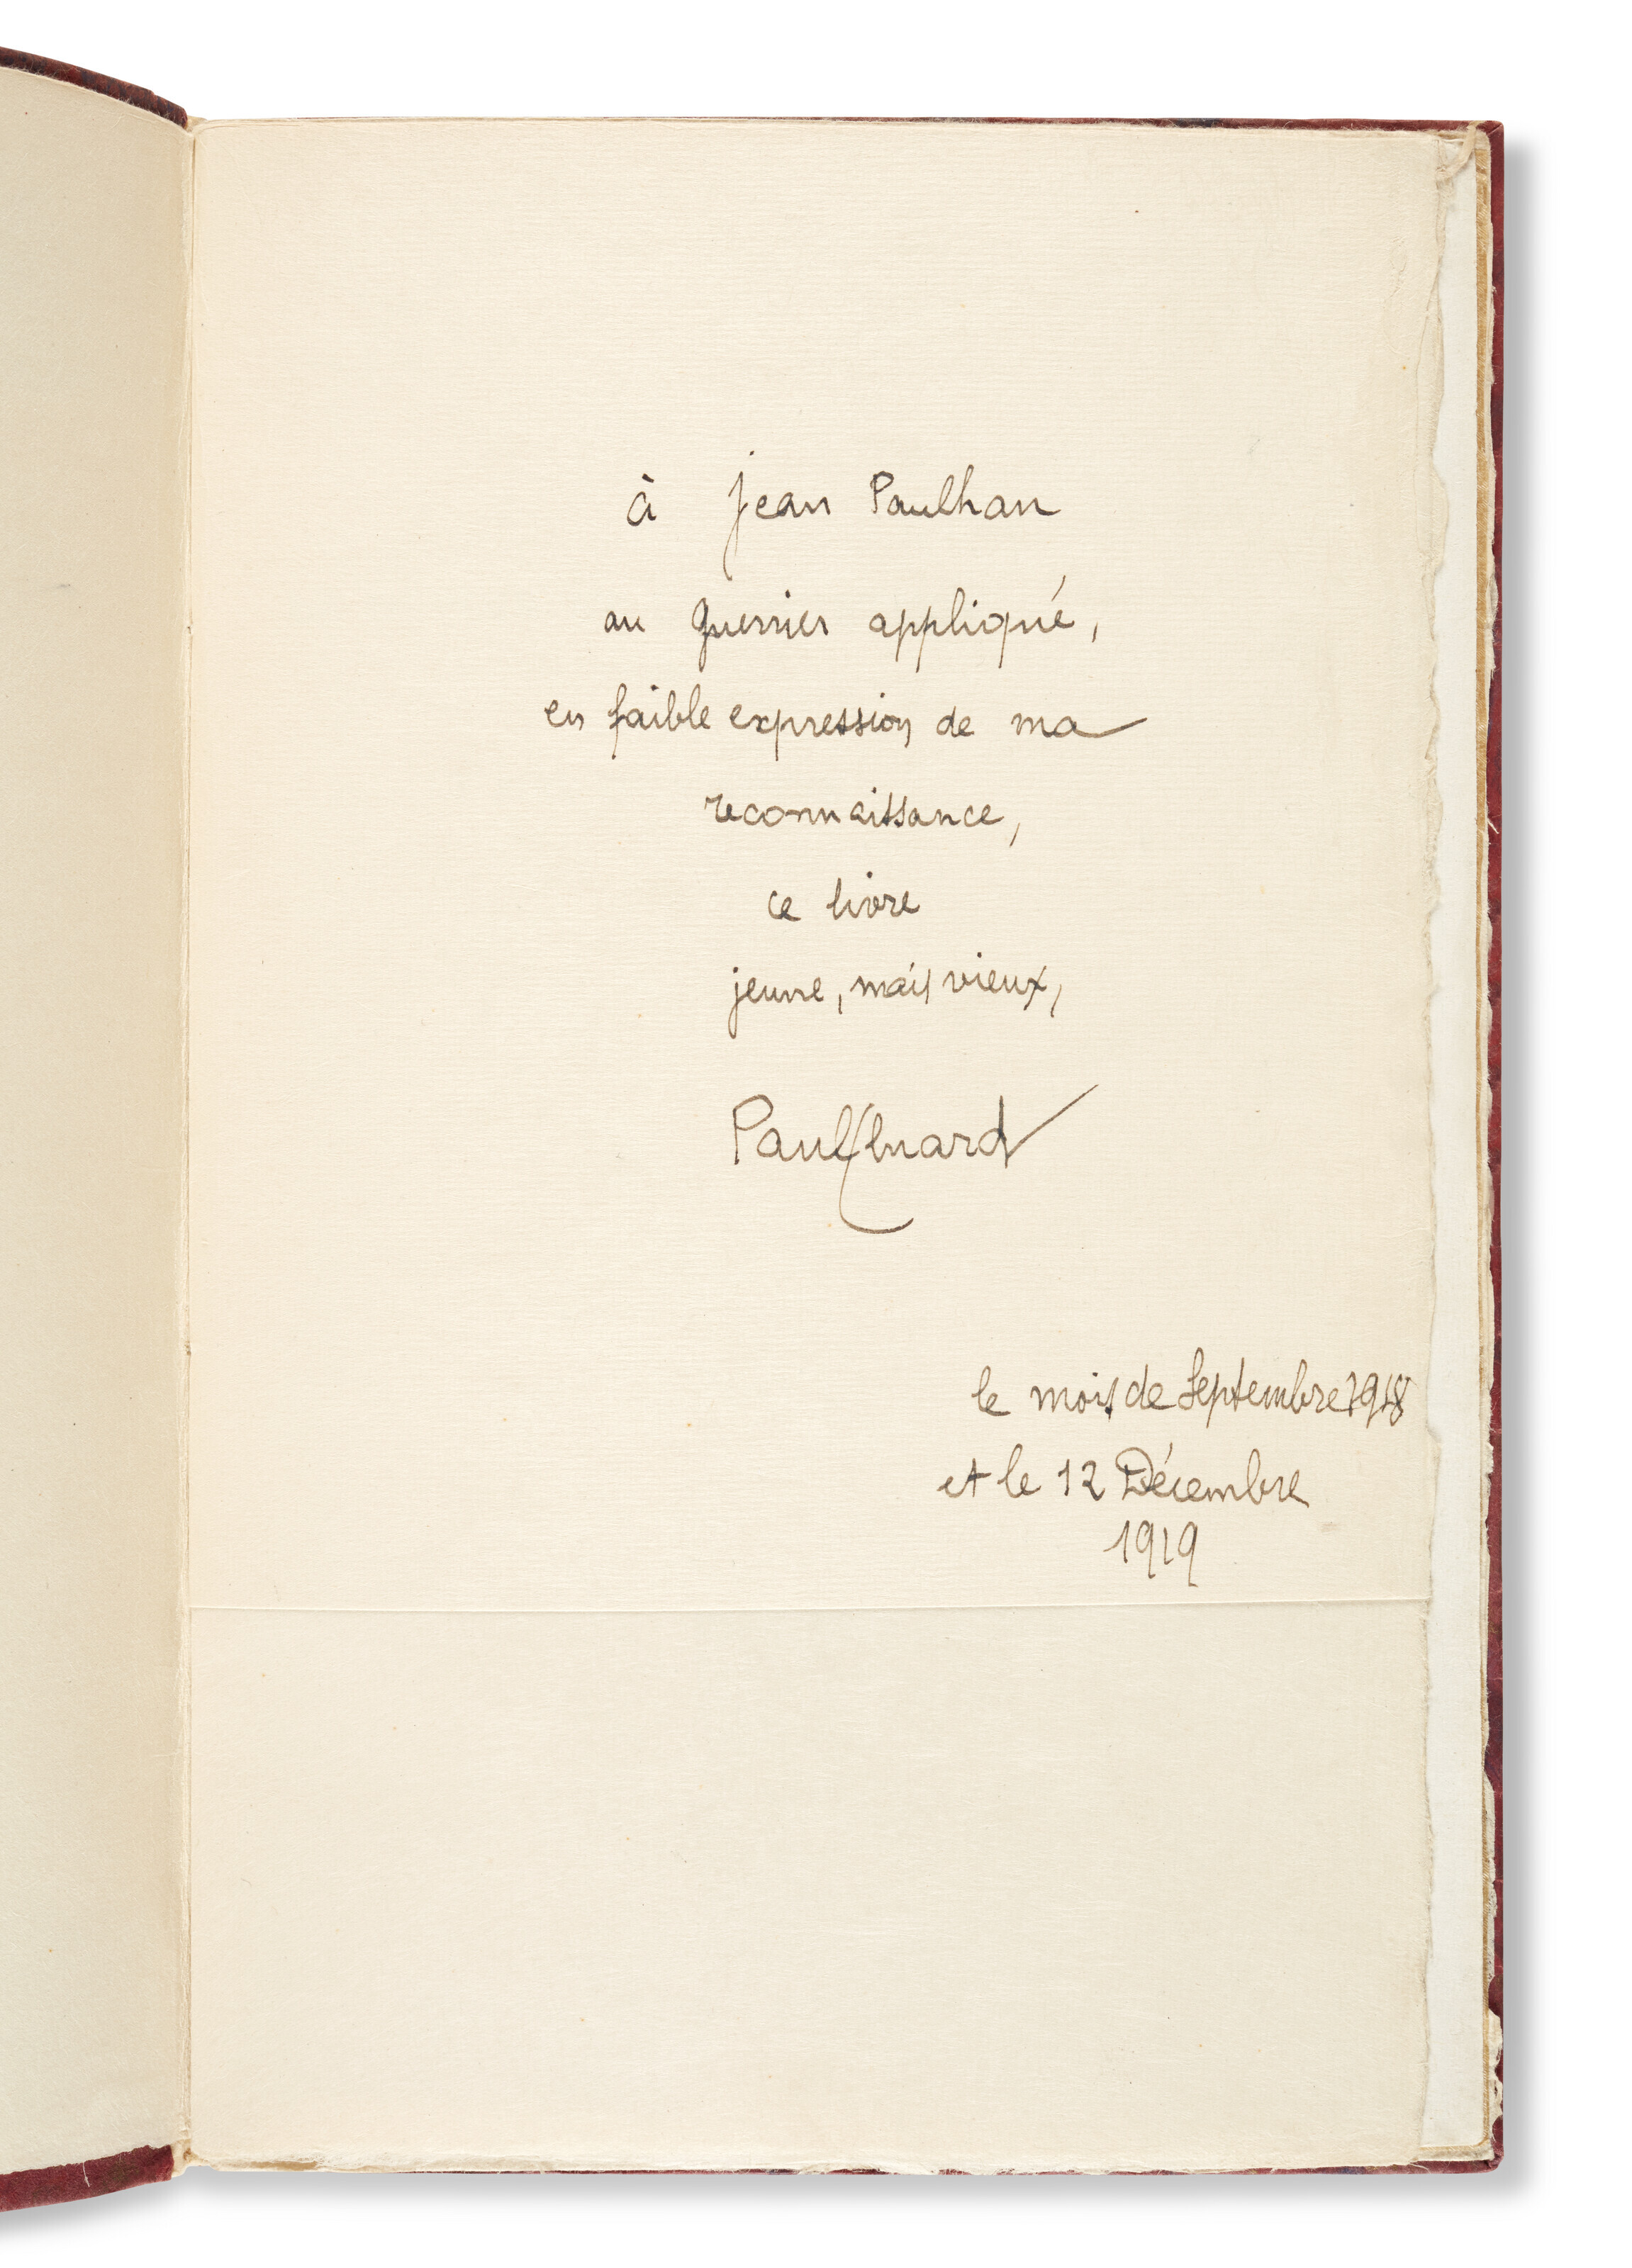 à Jean Paulhan
au guerrier appliqué,
en faible expression de ma
reconnaissance,
ce livre
jeune, mais vieux,
Paul Eluard
le mois de Septembre 1918
et le 12 Décembre
1919